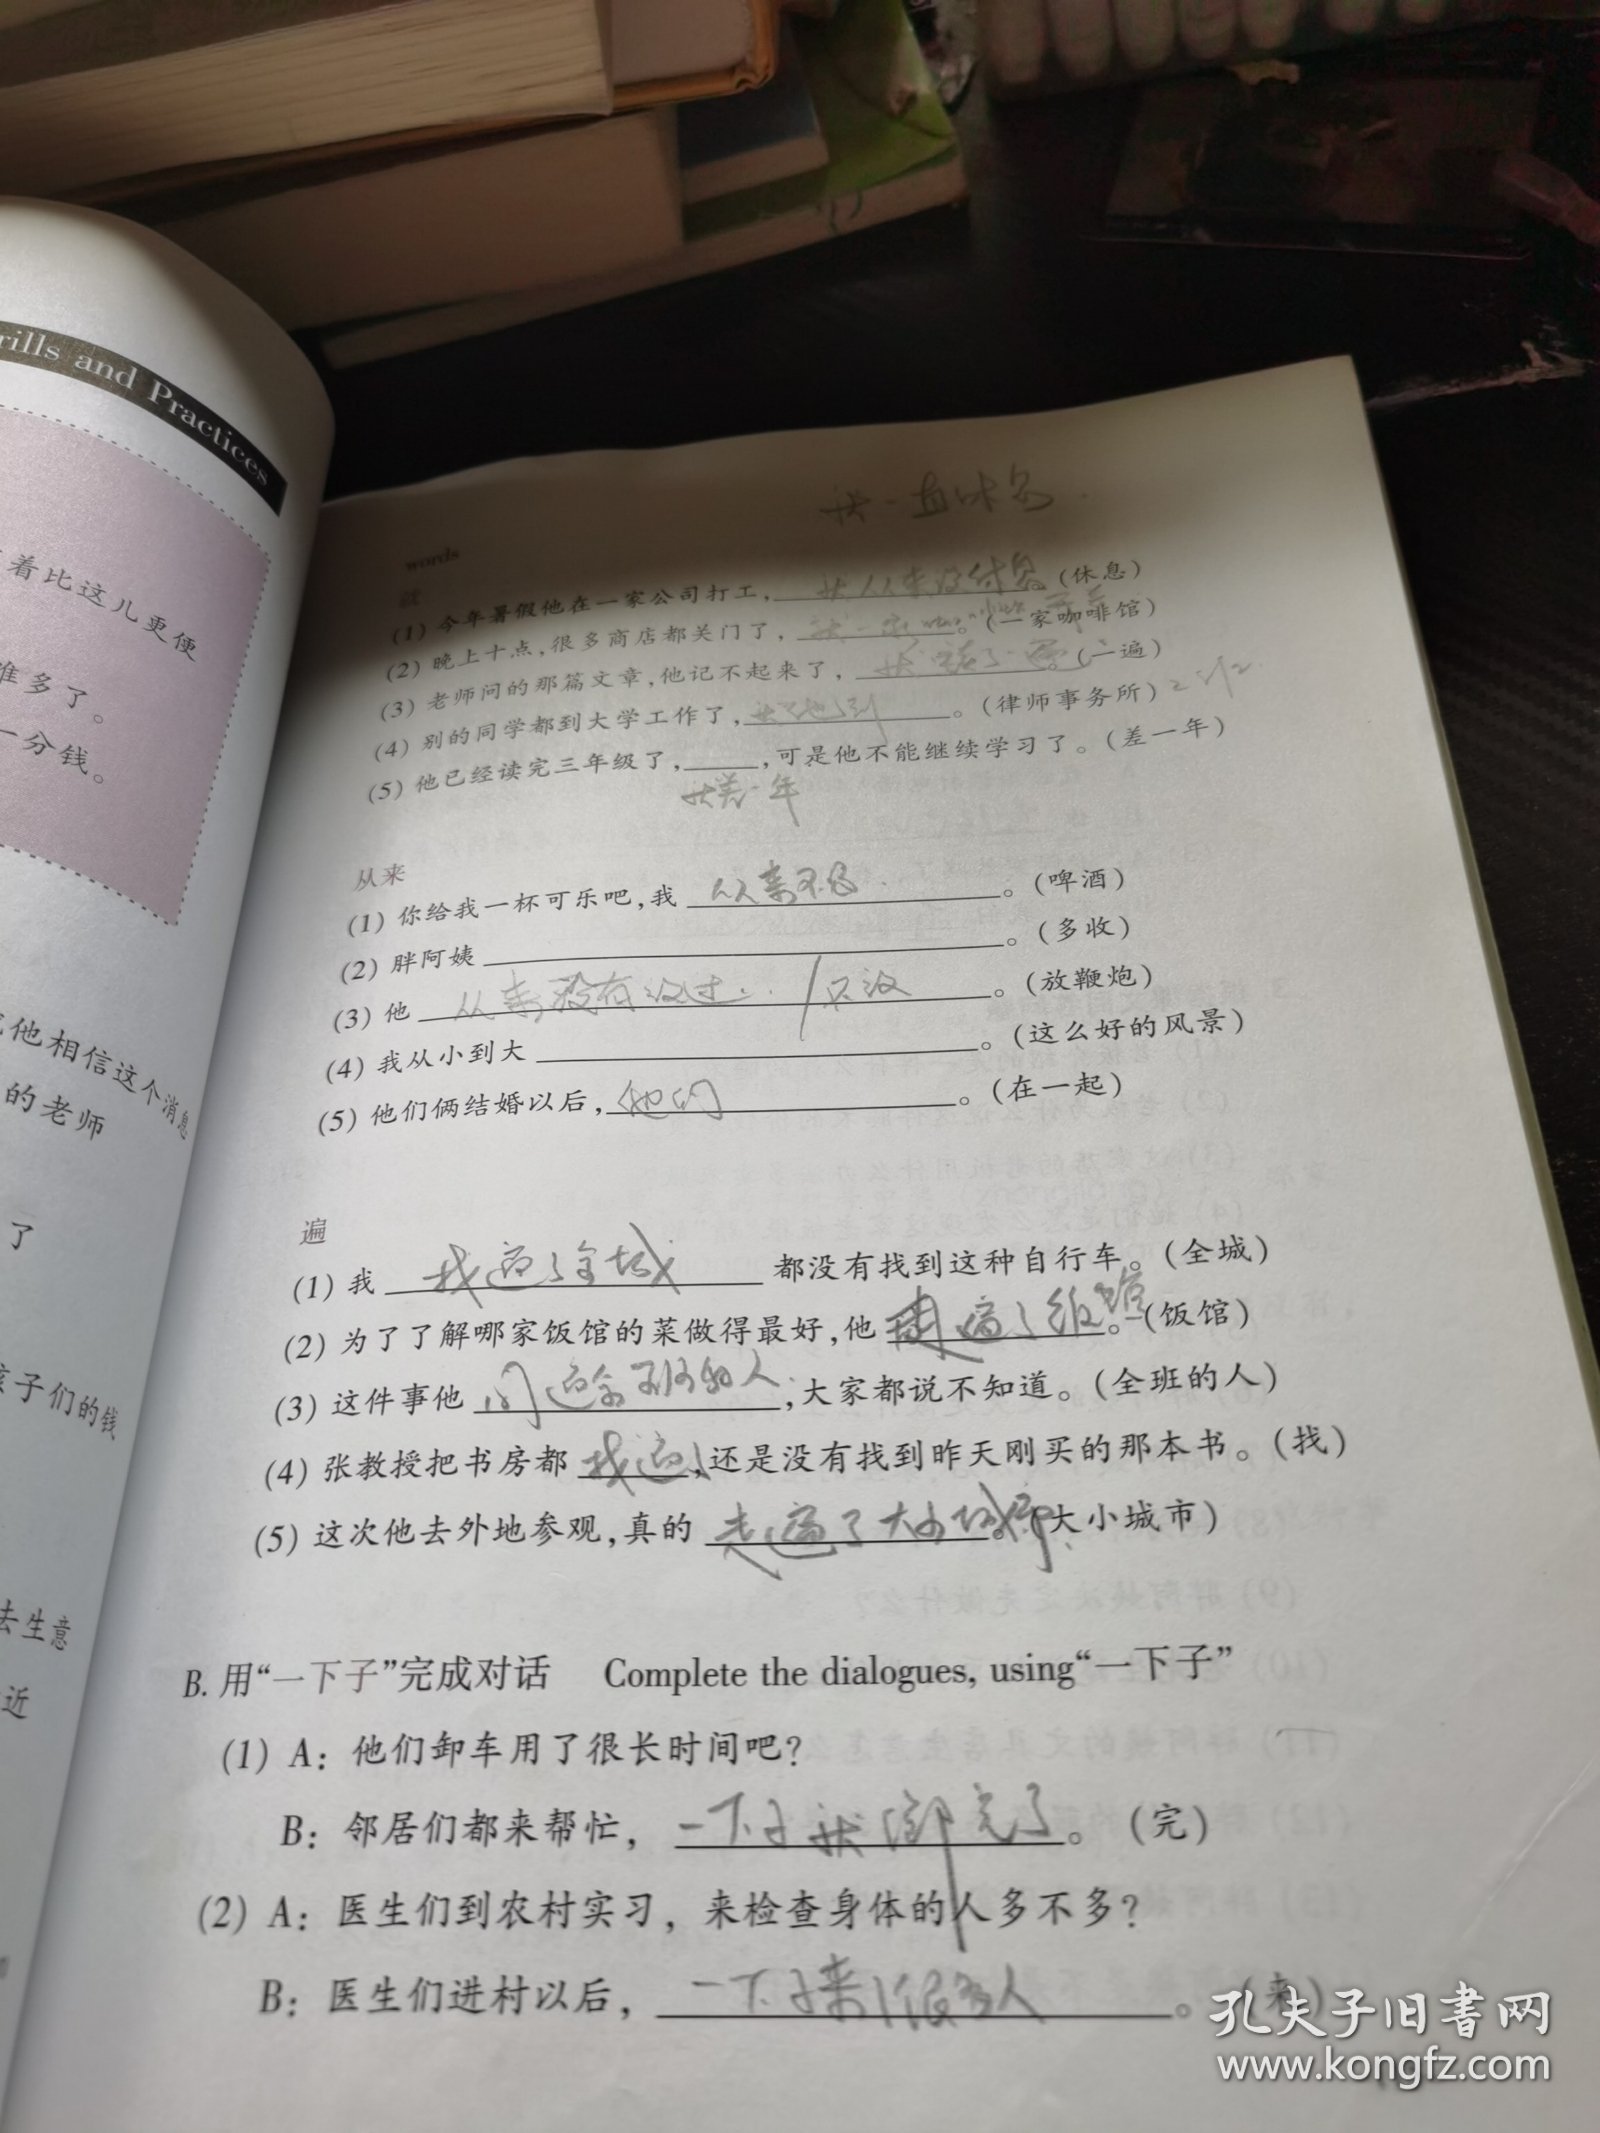 rills and Practices
着比这儿更便
准多了。
一分钱。
他相信这个消息
的老师
了
孩子们的钱
去生意
近
words
就
(1) 今年暑假他在一家公司打工，(休息)
(2) 晚上十点，很多商店都关门了，。(一家咖啡馆)
(3) 老师问的那篇文章，他记不起来了，(一遍)
(4) 别的同学都到大学工作了，。(律师事务所)
(5) 他已经读完三年级了，，可是他不能继续学习了。(差一年)
就差一年
从来
(1) 你给我一杯可乐吧，我 从来不。(啤酒)
(2) 胖阿姨。(多收)
(3) 他 从来没有。(放鞭炮)
(4) 我从小到大。(这么好的风景)
(5) 他们俩结婚以后，他们。(在一起)
遍
(1) 我 找遍了全城 都没有找到这种自行车。(全城)
(2) 为了了解哪家饭馆的菜做得最好，他 遍了饭馆。(饭馆)
(3) 这件事他 问遍全班的人，大家都说不知道。(全班的人)
(4) 张教授把书房都 找遍了，还是没有找到昨天刚买的那本书。(找)
(5) 这次他去外地参观，真的 走遍了大小城市。(大小城市)
B. 用“一下子”完成对话 Complete the dialogues, using“一下子”
(1) A: 他们卸车用了很长时间吧？
B: 邻居们都来帮忙，一下子就卸完了。(完)
(2) A: 医生们到农村实习，来检查身体的人多不多？
B: 医生们进村以后，一下子来了很多人。(来)
孔夫子旧书网
www.kongfz.com